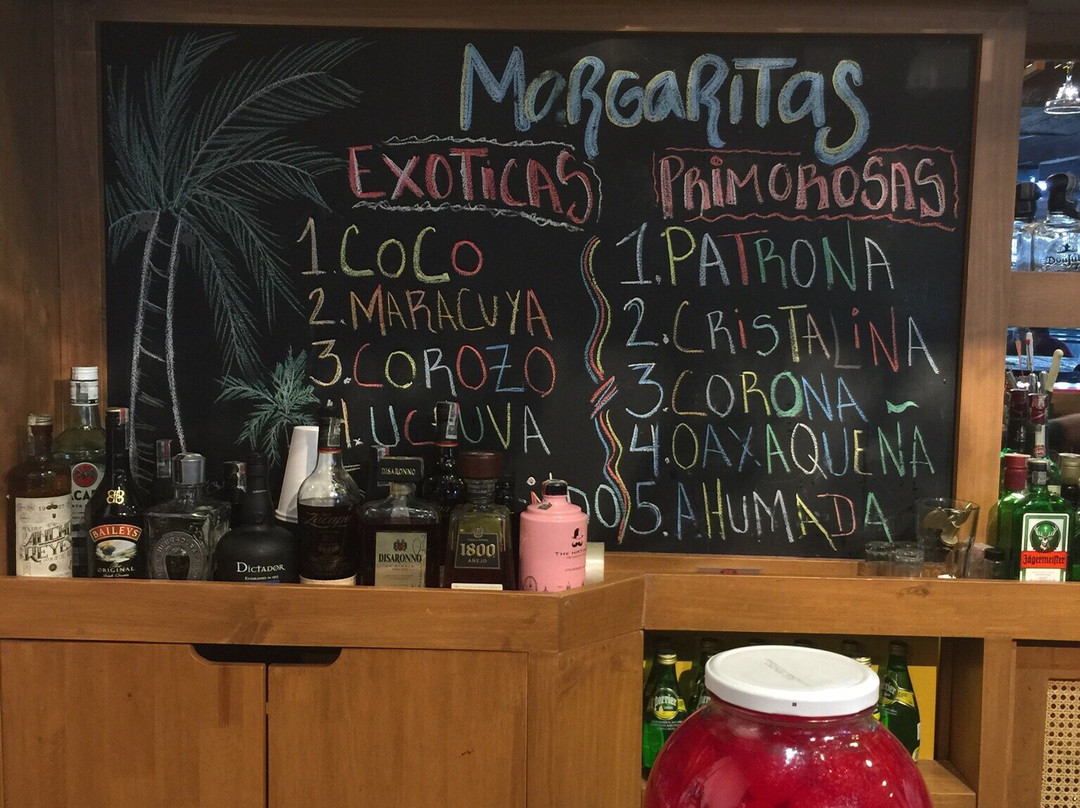 MORGARITAS
EXOTICAS
1. COCO
2. MARACUYA
3. COROZO
4. UCHUVA
PRIMOROSAS
1. PATRONA
2. CRISTALINA
3. CORONA
4. OAXAQUEÑA
5. AHUMADA
BAILEYS
ORIGINAL
Dictador
DISARONNO
DISARONNO
1800
AÑEJO
Jägermeister
Perrier